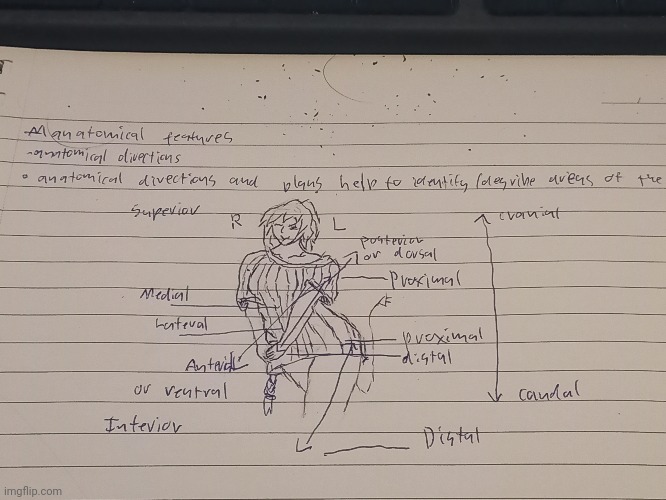 anatomical features
-anatomical directions
• anatomical directions and plans help to identify/describe areas of the
Superior
R
L
cranial
posterior
or dorsal
Proximal
Medial
Lateral
proximal
distal
Anterior
or ventral
caudal
Interior
Distal
imgflip.com